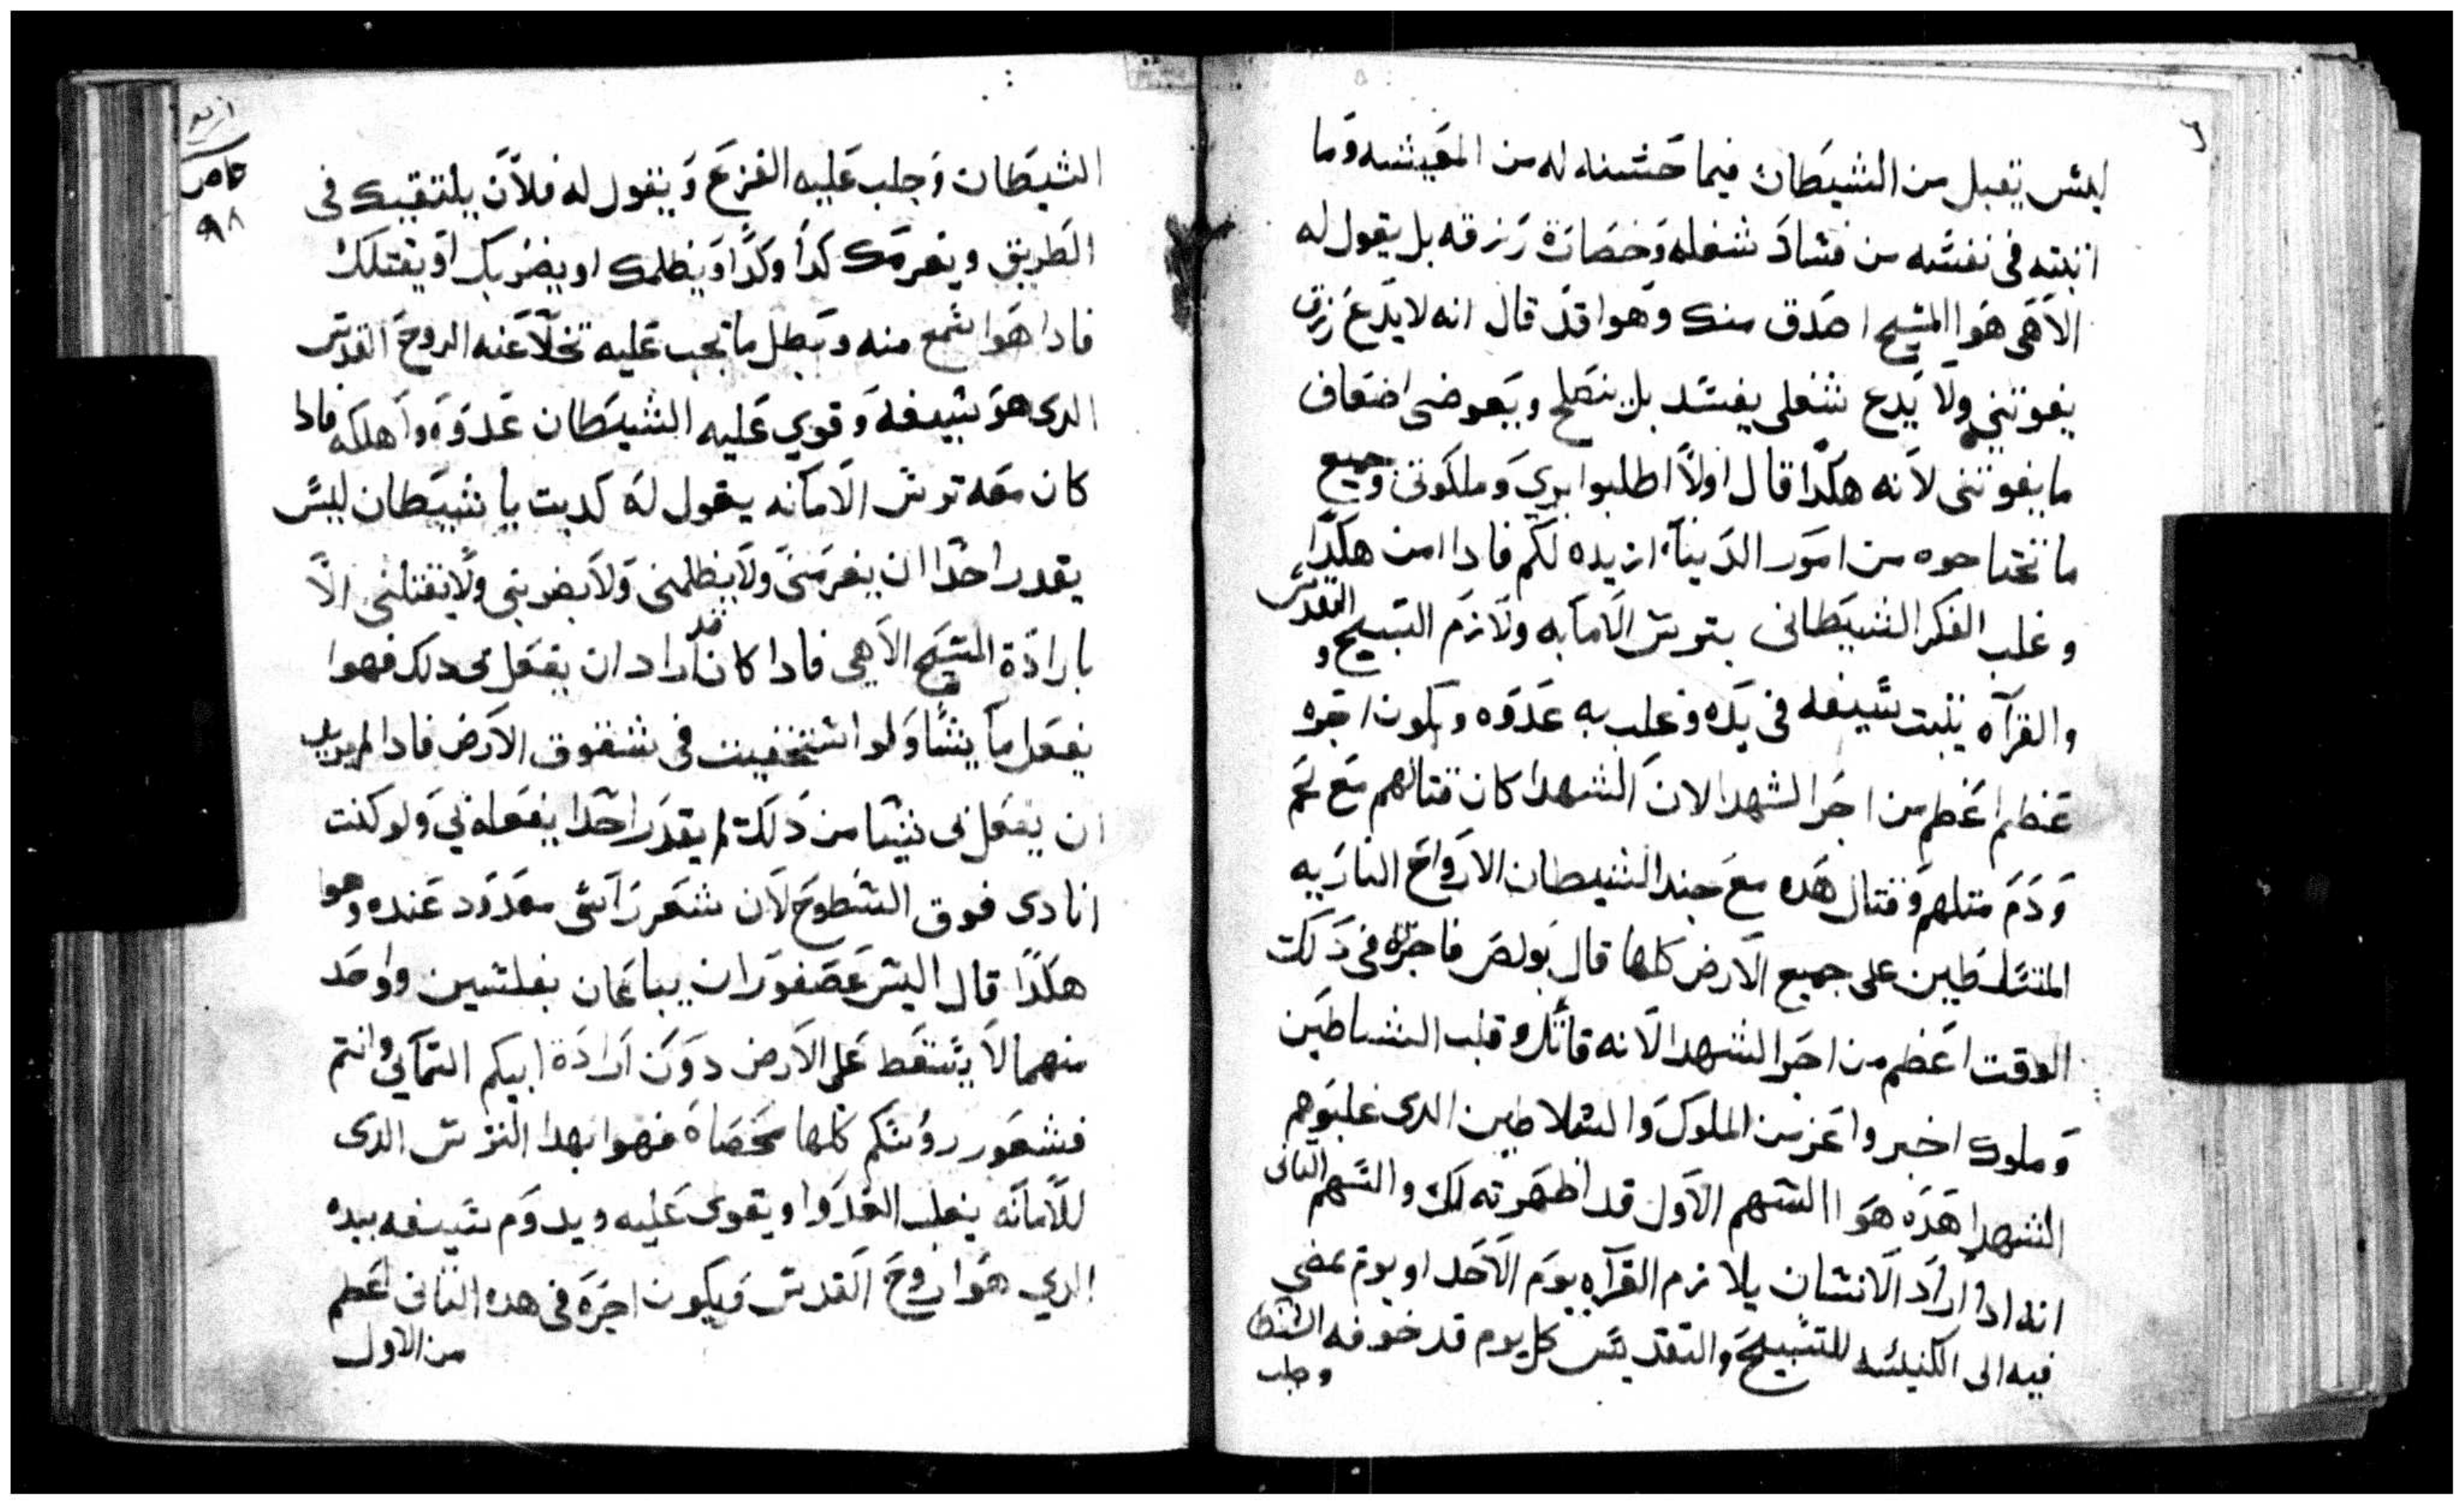 ليس يقبل من الشيطان فيما حسنه له من المعيشه وما
اتبته في نفسه من فساد شغله وخصارة رزقه بل يقول له
الاهي هوا المسيح اصدق منك وهوا قد قال انه لا يدع رزق
يفوتني ولا يدع شغلي يفسد بل ينصلح ويعوضني اضعاف
ما يفوتني لانه هكدا قال اولاً اطلبوا بري وملكوتي وجميع
ما تحتاجوه من امور الدنيا ازيده لكم فادا امن هكدا
وغلب الفكر الشيطاني بترس الامانه ولازم التسبيح و التقديس
والقرآه يتبت سيفه في يده وغلب به عدوه ويكون اجره
عظيم اعظم من اجر الشهدا لان الشهدا كان قتالهم مع لحم
ودم متلهم وقتال هده مع جند الشيطان الارواح الناريه
المتسلطين على جميع الارض كلها قال بولص فاجره في دلك
الوقت اعظم من اجر الشهدا لانه قاتل وغلب الشياطين
وملوك اخبر واعز من الملوك والسلاطين الدي غلبوهم
الشهدا هده هوا السهم الاول قد اظهرته لك والسهم التاني
انه ادا اراد الانسان يلازم القرآه يوم الاحد او يوم يمضي
فيه الى الكنيسه للتسبيح والتقديس كل يوم قد خوفه الشيطا
وجلب
ازيد
خامس
٩٨
الشيطان وجلب عليه الفزع ويقول له فلان يلتقيك في
الطريق ويغرمك كدا وكدا ويظلمك او يضربك او يقتلك
فادا هوا سمع منه وبطل ما تجب عليه تخلا عنه الروح القدس
الدى هو سيفه وقوي عليه الشيطان عدوه واهلكه فادا
كان معه ترس الامانه يقول له كدبت يا شيطان ليس
يقدر احدا ان يغرمني ولا يظلمني ولا يضربني ولا يقتلني الا
بارادة المسيح الاهي فادا كان قد اراد ان يفعل بي دلك فهوا
يفعل ما يشا ولو استخفيت في شقوق الارض فادا لم يريد
ان يفعل بى شيا من دلك لم يقدر احدا يفعله بي ولو كنت
انادى فوق السطوح لان شعر راسى معدود عنده وهوا
هكدا قال اليس عصفوران يباعان بفلسين وواحد
منهما لا يسقط على الارض دون ارادة ابيكم السمآني وانتم
فشعور روسكم كلها محصاه فهوا بهدا الترس الدى
للامانه يغلب العدوا ويقوى عليه ويدوم سيفه بيده
الدي هوا روح القدس ويكون اجره في هده التاني اعظم
من الاول